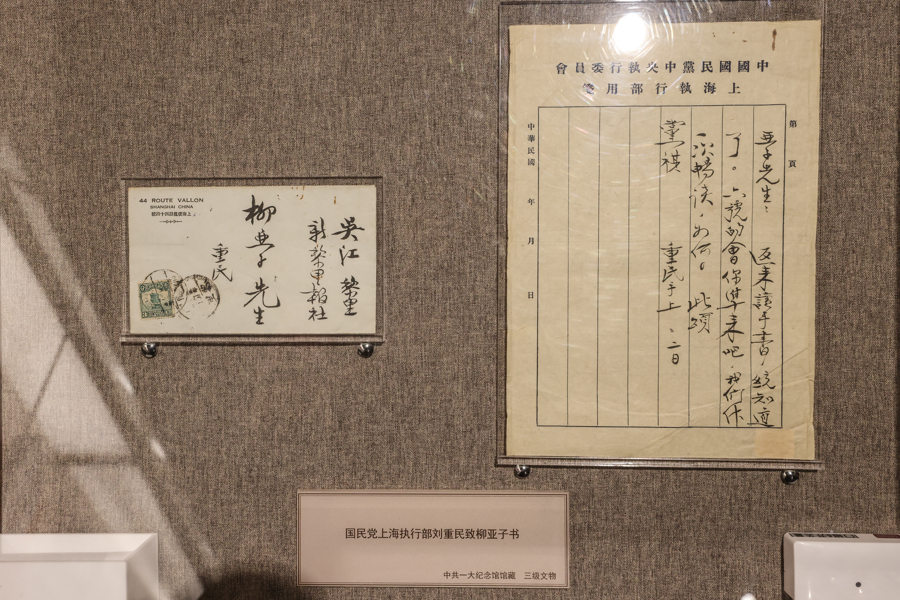 44 ROUTE VALLON
SHANGHAI CHINA
上海環龍路四十四號
吳江 黎里
新黎里報社
柳亞子先生
重民
中國國民黨中央執行委員會
上海執行部用箋
第 頁
亞子先生：
返來讀手書，統知道
了。六號的會你準來吧，我們作
一次暢談，如何。此頌
黨祺
重民手上、二日
中華民國 年 月 日
国民党上海执行部刘重民致柳亚子书
中共一大纪念馆馆藏 三级文物